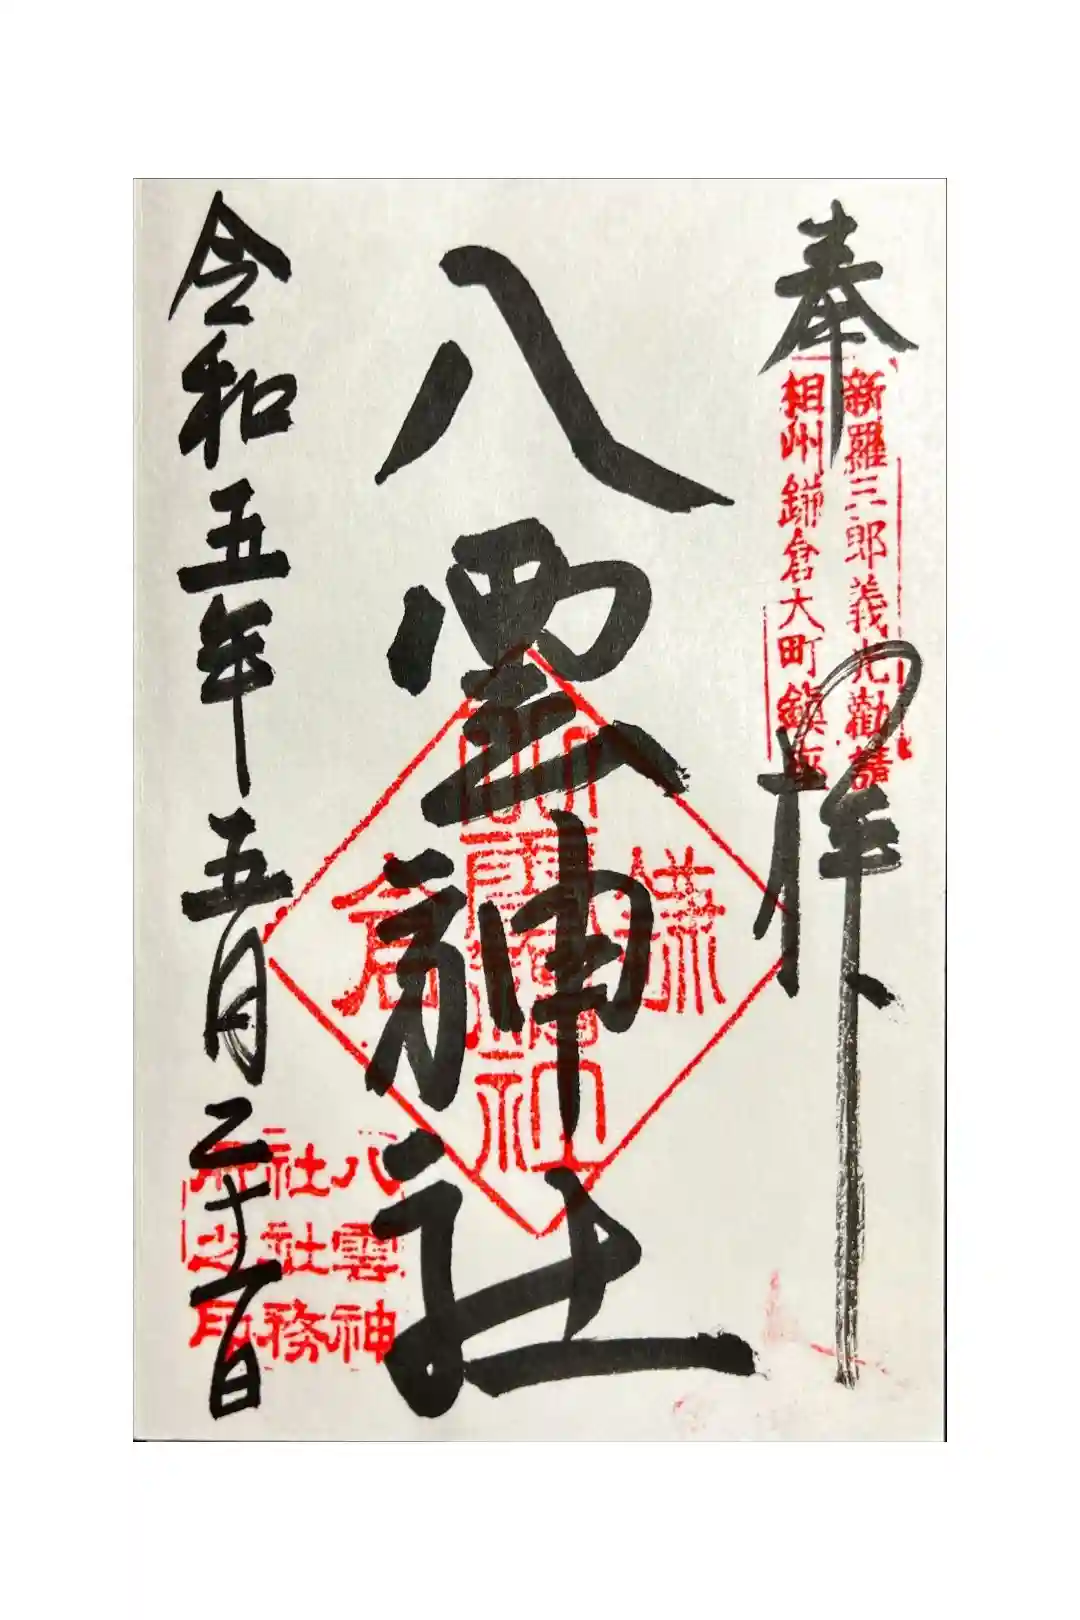 奉拝
新羅三郎義光勸請
相州鎌倉大町鎮座
八雲神社
鎌倉
令和五年五月二十一日
八雲神
社社務
所之印